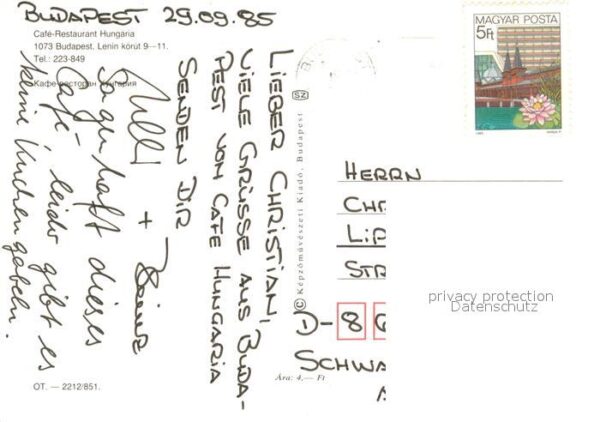 BUDAPEST 29.09.85
Café-Restaurant Hungária
1073 Budapest, Lenin körút 9—11.
Tel.: 223-849
Кафе-ресторан Хунгария
LIEBER CHRISTIAN,
VIELE GRÜSSE AUS BUDA-
PEST VOM CAFE HUNGARIA
SENDEN DIR
+ Heinz
Sagenhaft dieses
Café – leider gibt es
keine Kuchengabeln.
OT. — 2212/851.
SZ
© Képzőművészeti Kiadó, Budapest
Ára: 4,— Ft
MAGYAR POSTA
5Ft
HERRN
CHR
LIP
STR
A-8
SCHWA
privacy protection
Datenschutz